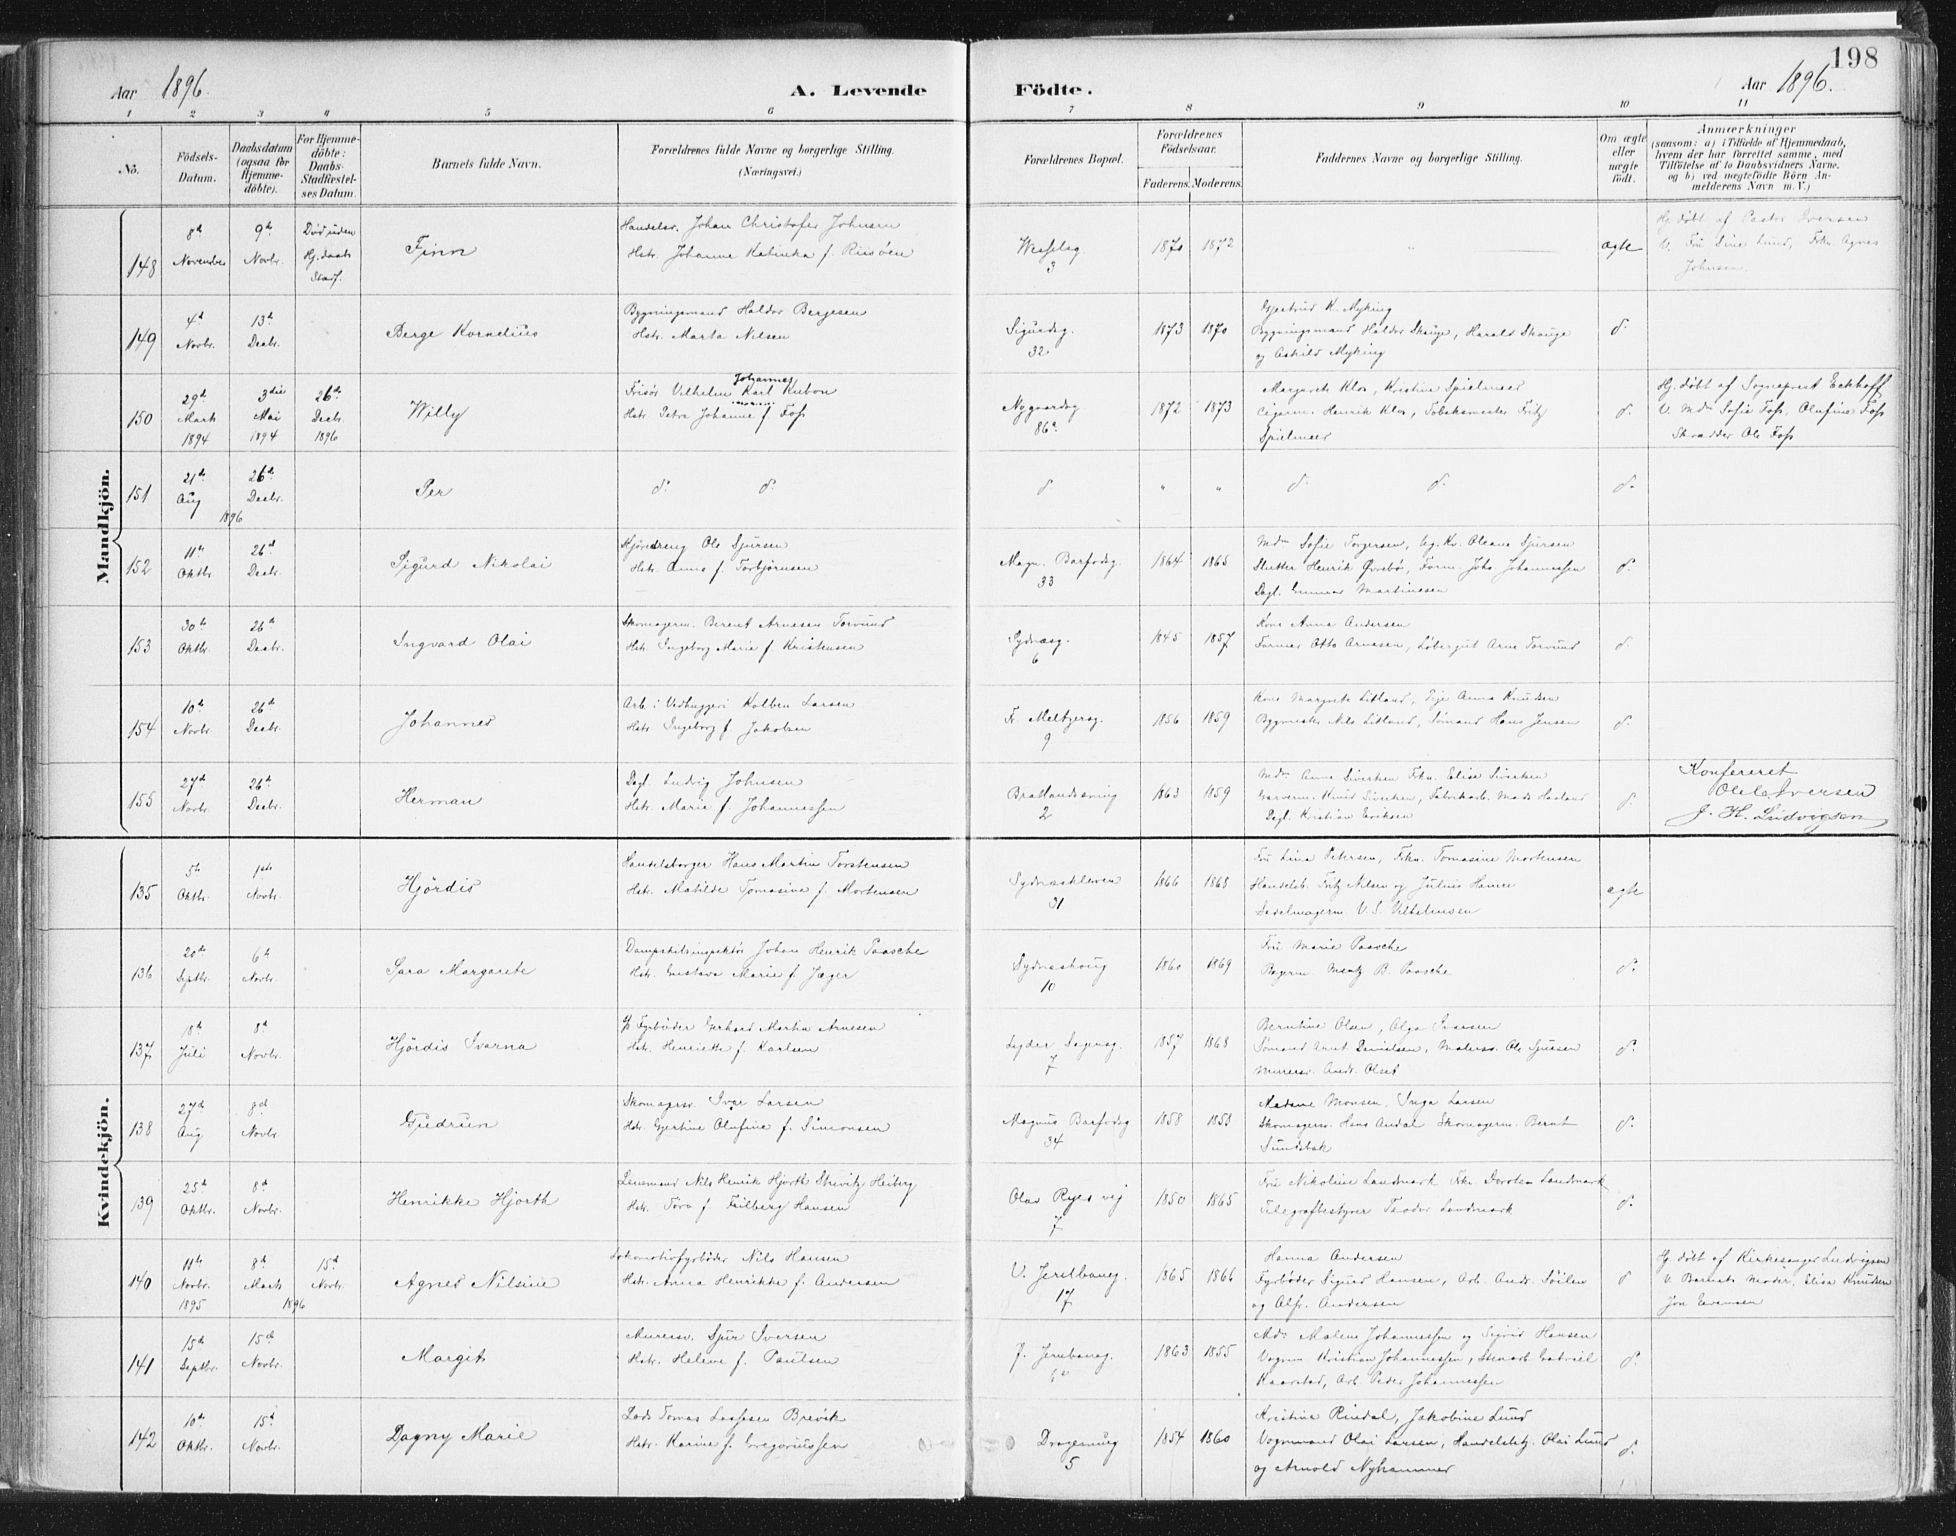 198
Aar 1896.
A. Levende Födte.
Aar 1896.
1 2 3 4 5 6 7 8 9 10 11
No.
Födsels-Datum.
Daabsdatum (ogsaa for Hjemme-döbte).
For Hjemme-döbte: Daabs-Stadfæstel-ses Datum.
Barnets fulde Navn.
Forældrenes fulde Navne og borgerlige Stilling. (Næringsvei.)
Forældrenes Bopæl.
Forældrenes Födselsaar.
Faderens. Moderens.
Faddernes Navne og borgerlige Stilling.
Om ægte eller uægte födt.
Anmærkninger
(saasom: a) i Tilfælde af Hjemmedaab,
hvem der har forrettet samme, med
Tilföielse af to Daabsvidners Navne,
og b) ved uægtefödte Börn An-
melderens Navn m. V.)
Mandkjön.
148 8d November 9de Novbr. Död uden Hj. daabs Stadf. Finn
Handelsr. Johan Christofer Johnsen
Hstr. Johanne Katinka f. Riisöen
Wesselsg. 3 1870 1872 ægte
Hj. döbt af Pastor Iversen
V. Fru Sine Lund, Frk. Agnes
Johnsen.
149 4d Novbr. 13d Decbr. Berge Kornelius
Bygningsmand Haldor Bergesen
Hstr. Marta Nilsen
Sigurdsg. 32 1873 1870
K. Myking
Bygningsmand Haldor Skauge, Harald Skauge
og Askild Myking
d.
150 29d Marts 1894 3die Mai 1894 26d Decbr. 1896 Willy
Frisör Vilhelm Johannes Karl Kubon
Hstr. Petra Johanne f. Foss
Nygaardsg 86a 1872 1873
Margarete Klos, Kristine Spielmeer
Cigarm. Henrik Klos, Tobaksmester Fritz
Spielmeer
d.
Hj. döbt af Sogneprest Eckhoff
V. Mdm Sofie Foss, Olufine Foss
Skrædder Ole Foss
151 21d Aug 26d Decbr. 1896 Per
d. d. d " " d. d. d.
152 11te Oktbr. 26d Decbr. Sigurd Nikolai
Kjöredreng Ole Sjursen
Hstr. Anna f. Torbjörnsen
Magn. Barfodsg. 33 1864 1865
Mdm Sofie Torgersen, Ug. Kv. Oleane Sjursen
Slutter Henrik Övrebö, Form. Johs. Johannessen
Dagl. Gunnar Martinesen
d.
153 30te Oktbr. 26d Decbr. Ingvard Olai
Skomagerm. Berent Arnesen Torvund
Hstr. Ingeborg Marie f. Kristensen
Sydnæsg. 6 1845 1857
Kone Anna Andersen
Former Otto Arnesen, Löbergut Arne Torvund
d.
154 10de Novbr. 26d Decbr. Johannes
Arb. i Vedhuggeri Kolben Larsen
Hstr. Ingeborg f. Jakobsen
Fr. Meltzersg. 9 1856 1859
Kone Margrete Litland, Pige Anna Knudsen
Bygmester Nils Litland, Sömand Hans Jensen
d.
155 27d Novbr. 26d Decbr. Herman
Dagl. Ludvig Johnsen
Hstr. Marie f. Johannessen
Bratlandssving 2 1863 1859
Mdm Anna Siverken Frkn. Elise Siverken
Garverm. Knud Siverken, Fabrikarb. Mads Haaland
Dagl. Kristian Eriksen
d.
Konfereret
Ole Iversen
J. H. Ludvigsen
Kvindekjön.
135 5te Oktbr. 1ste Novbr. Hjördis
Handelsborger Hans Martin Torstensen
Hstr. Matilde Tomasine f. Mortensen
Sydneskleven 31 1866 1868
Fru Lina Petersen, Frkn. Tomasine Mortensen
Handelsb. Fritz Nilsen og Julius Hamre
Sadelmagerm. V. S. Vilhelmsen
ægte
136 20de Septbr. 6te Novbr. Sara Margarete
Dampskibsinspektör Johan Henrik Paasche
Hstr. Gustava Marie f. Jæger
Sydneshoug 10 1860 1869
Fru Marie Paasche
Bagerm. Mentz B. Paasche
d.
137 18d Juli 8d Novbr. Hjördis Svarna
Fyrböder Gerhard Martin Arnesen
Hstr. Henriette f. Karlsen
Lyder Sagensg. 7 1857 1868
Berntine Olsen, Olga Ivarsen
Sömand Arnt Danielsen, Malersv. Ole Sjursen
Murersv. Andr. Olset
d.
138 27d Aug 8d Novbr. Gudrun
Skomagersv. Ivar Larsen
Hstr. Gjertine Olufine f. Simonsen
Magnus Barfodsg 34 1858 1853
Madame Monsen, Inga Larsen
Skomagersv. Hans Andal Skomagerm. Bernt
Sundsbak
d.
139 25d Oktbr. 8d Novbr. Henrikke Hjorth
Lensmand Nils Henrik Hjorth Strevitz Heiberg
Hstr. Tora f. Feilberg Hansen
Olav Ryes vej 7 1850 1865
Fru Nikoline Landmark Frk. Dorotea Landmark
Telegrafbestyrer Teodor Landmark
d.
140 11te Novbr. 1895 8d Marts 1896 15d Novbr. Agnes Nilsine
Lokomotivfyrböder Nils Hansen
Hstr. Anna Henrikke f. Andersen
V. Jernbaneg. 17 1865 1866
Hanna Andersen
Fyrböder Sigurd Hansen, Arb. Andr. Söilen
og Alfr. Andersen
d
Hj. döbt af Kirkesanger Ludvigsen
V. Barnets Moder, Elisa Knudsen
Jon Evensen
141 15d Septbr. 15d Novbr. Margit
Murersv. Sjur Iversen
Hstr. Helene f. Paulsen
Jernbaneg. 1863 1855
Mdm Malene Johannessen og Sigrid Hansen
Vognm Kristian Johannessen, Stuart Gabriel
Kaarstad, Arb. Peder Johannessen
d.
142 10de Oktbr. 15d Novbr. Dagny Marie
Lods Tomas Lassesen Brevik
Hstr. Karine f. Gregoriussen
Dragesmug 5 1854 1860
Kristine Rindal, Jakobine Lund
Vognmand Olai Larsen, Handelsbetj. Olai Lund
og Arnold Nyhammer
d.